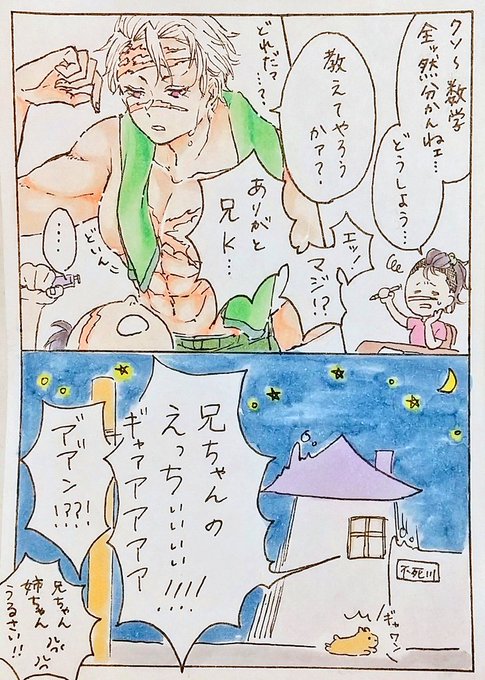 クソ〜数学
全ッ然分かんねェ…
どうしよう…
教えてやろう
かァ??
エッ!
マジ!?
ありがと
兄K…
どれだァ
…?
どいんこ
・・・
兄ちゃんの
えっちぃぃぃぃ!!!!
ギャァアアアアア
不死川
ギャワン
ア゛ア゛ン!??!
兄ちゃん
姉ちゃん
うるさい!!